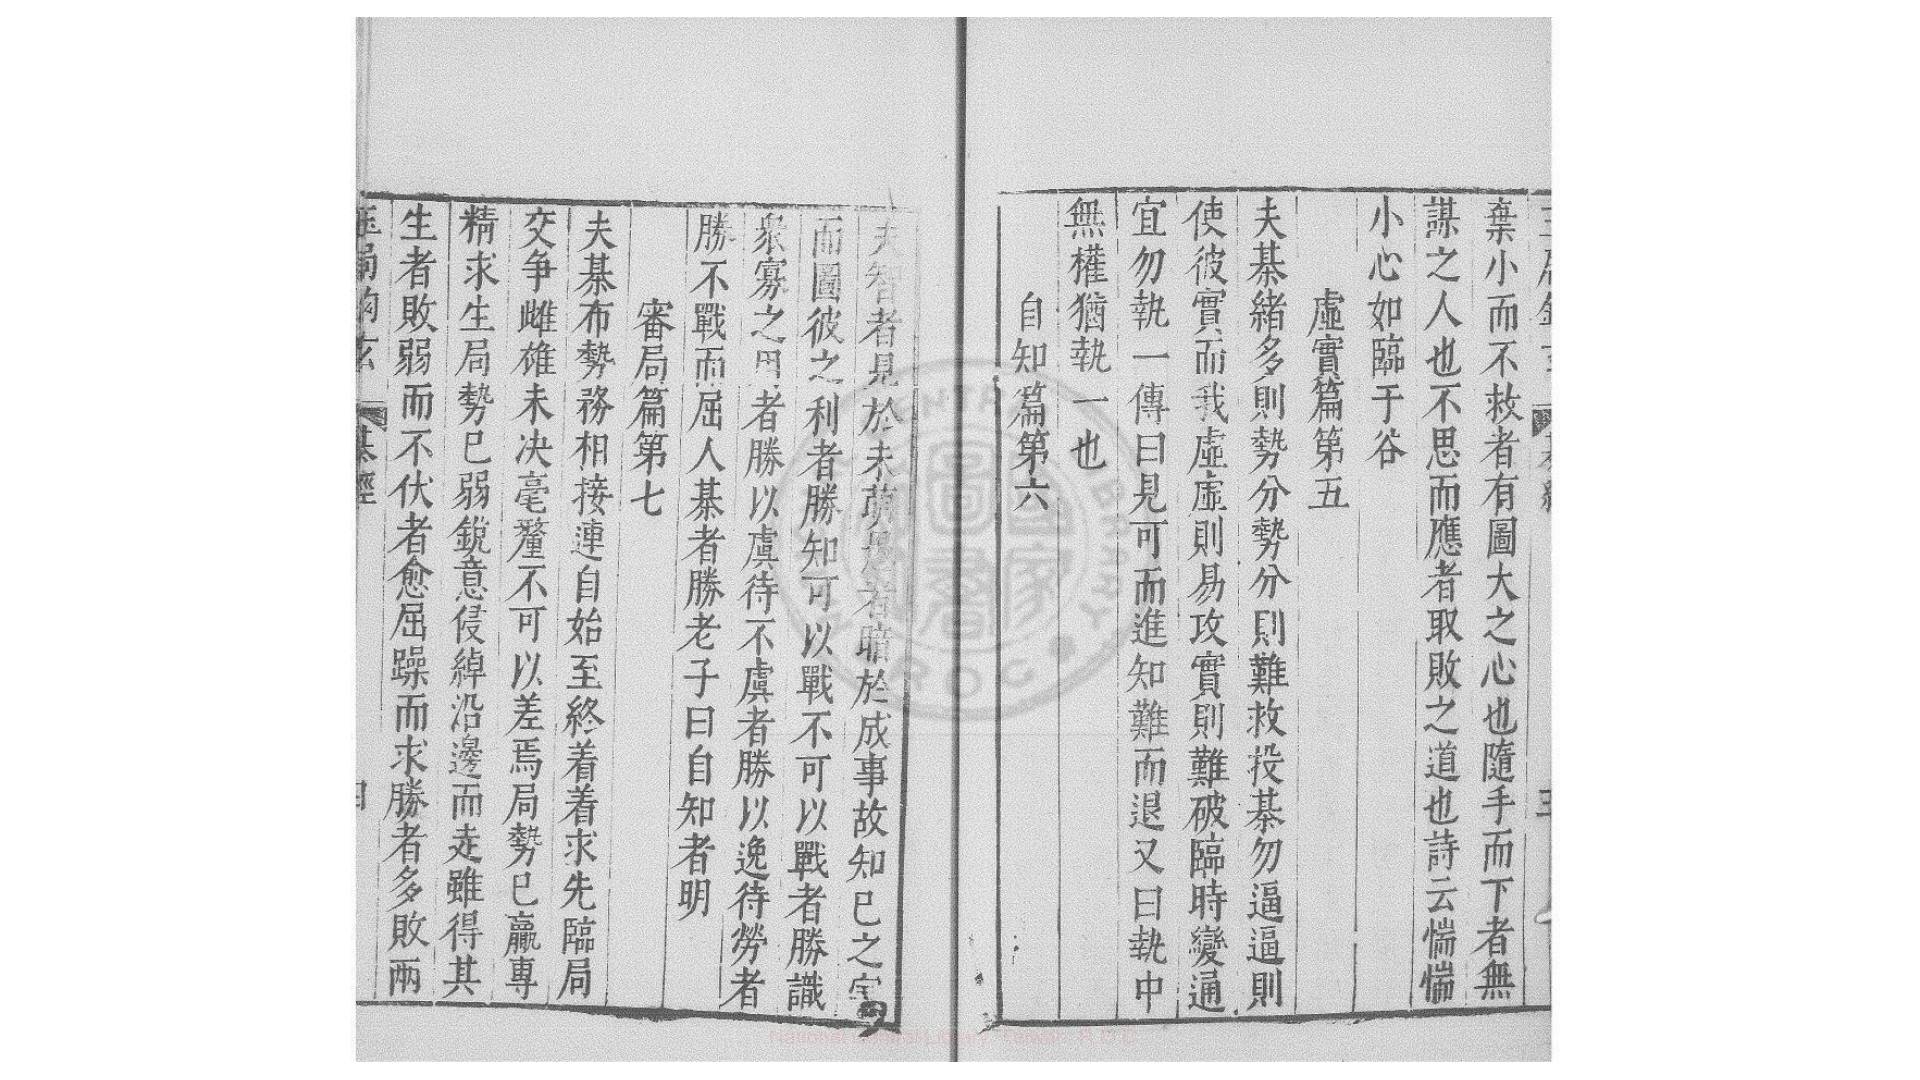 棄小而不救者有圖大之心也隨手而下者無
謀之人也不思而應者取敗之道也詩云惴惴
小心如臨于谷
虛實篇第五
夫棊緒多則勢分勢分則難救投棊勿逼逼則
使彼實而我虛虛則易攻實則難破臨時變通
宜勿執一傳曰見可而進知難而退又曰執中
無權猶執一也
自知篇第六
夫智者見於未萌愚者曉於成事故知己之害
而圖彼之利者勝知可以戰不可以戰者勝識
衆寡之用者勝以虞待不虞者勝以逸待勞者
勝不戰而屈人棊者勝老子曰自知者明
審局篇第七
夫棊布勢務相接連自始至終着着求先臨局
交争雌雄未决毫釐不可以差焉局勢已贏專
精求生局勢已弱銳意侵綽沿邊而走雖得其
生者敗弱而不伏者愈屈躁而求勝者多敗兩
棊經